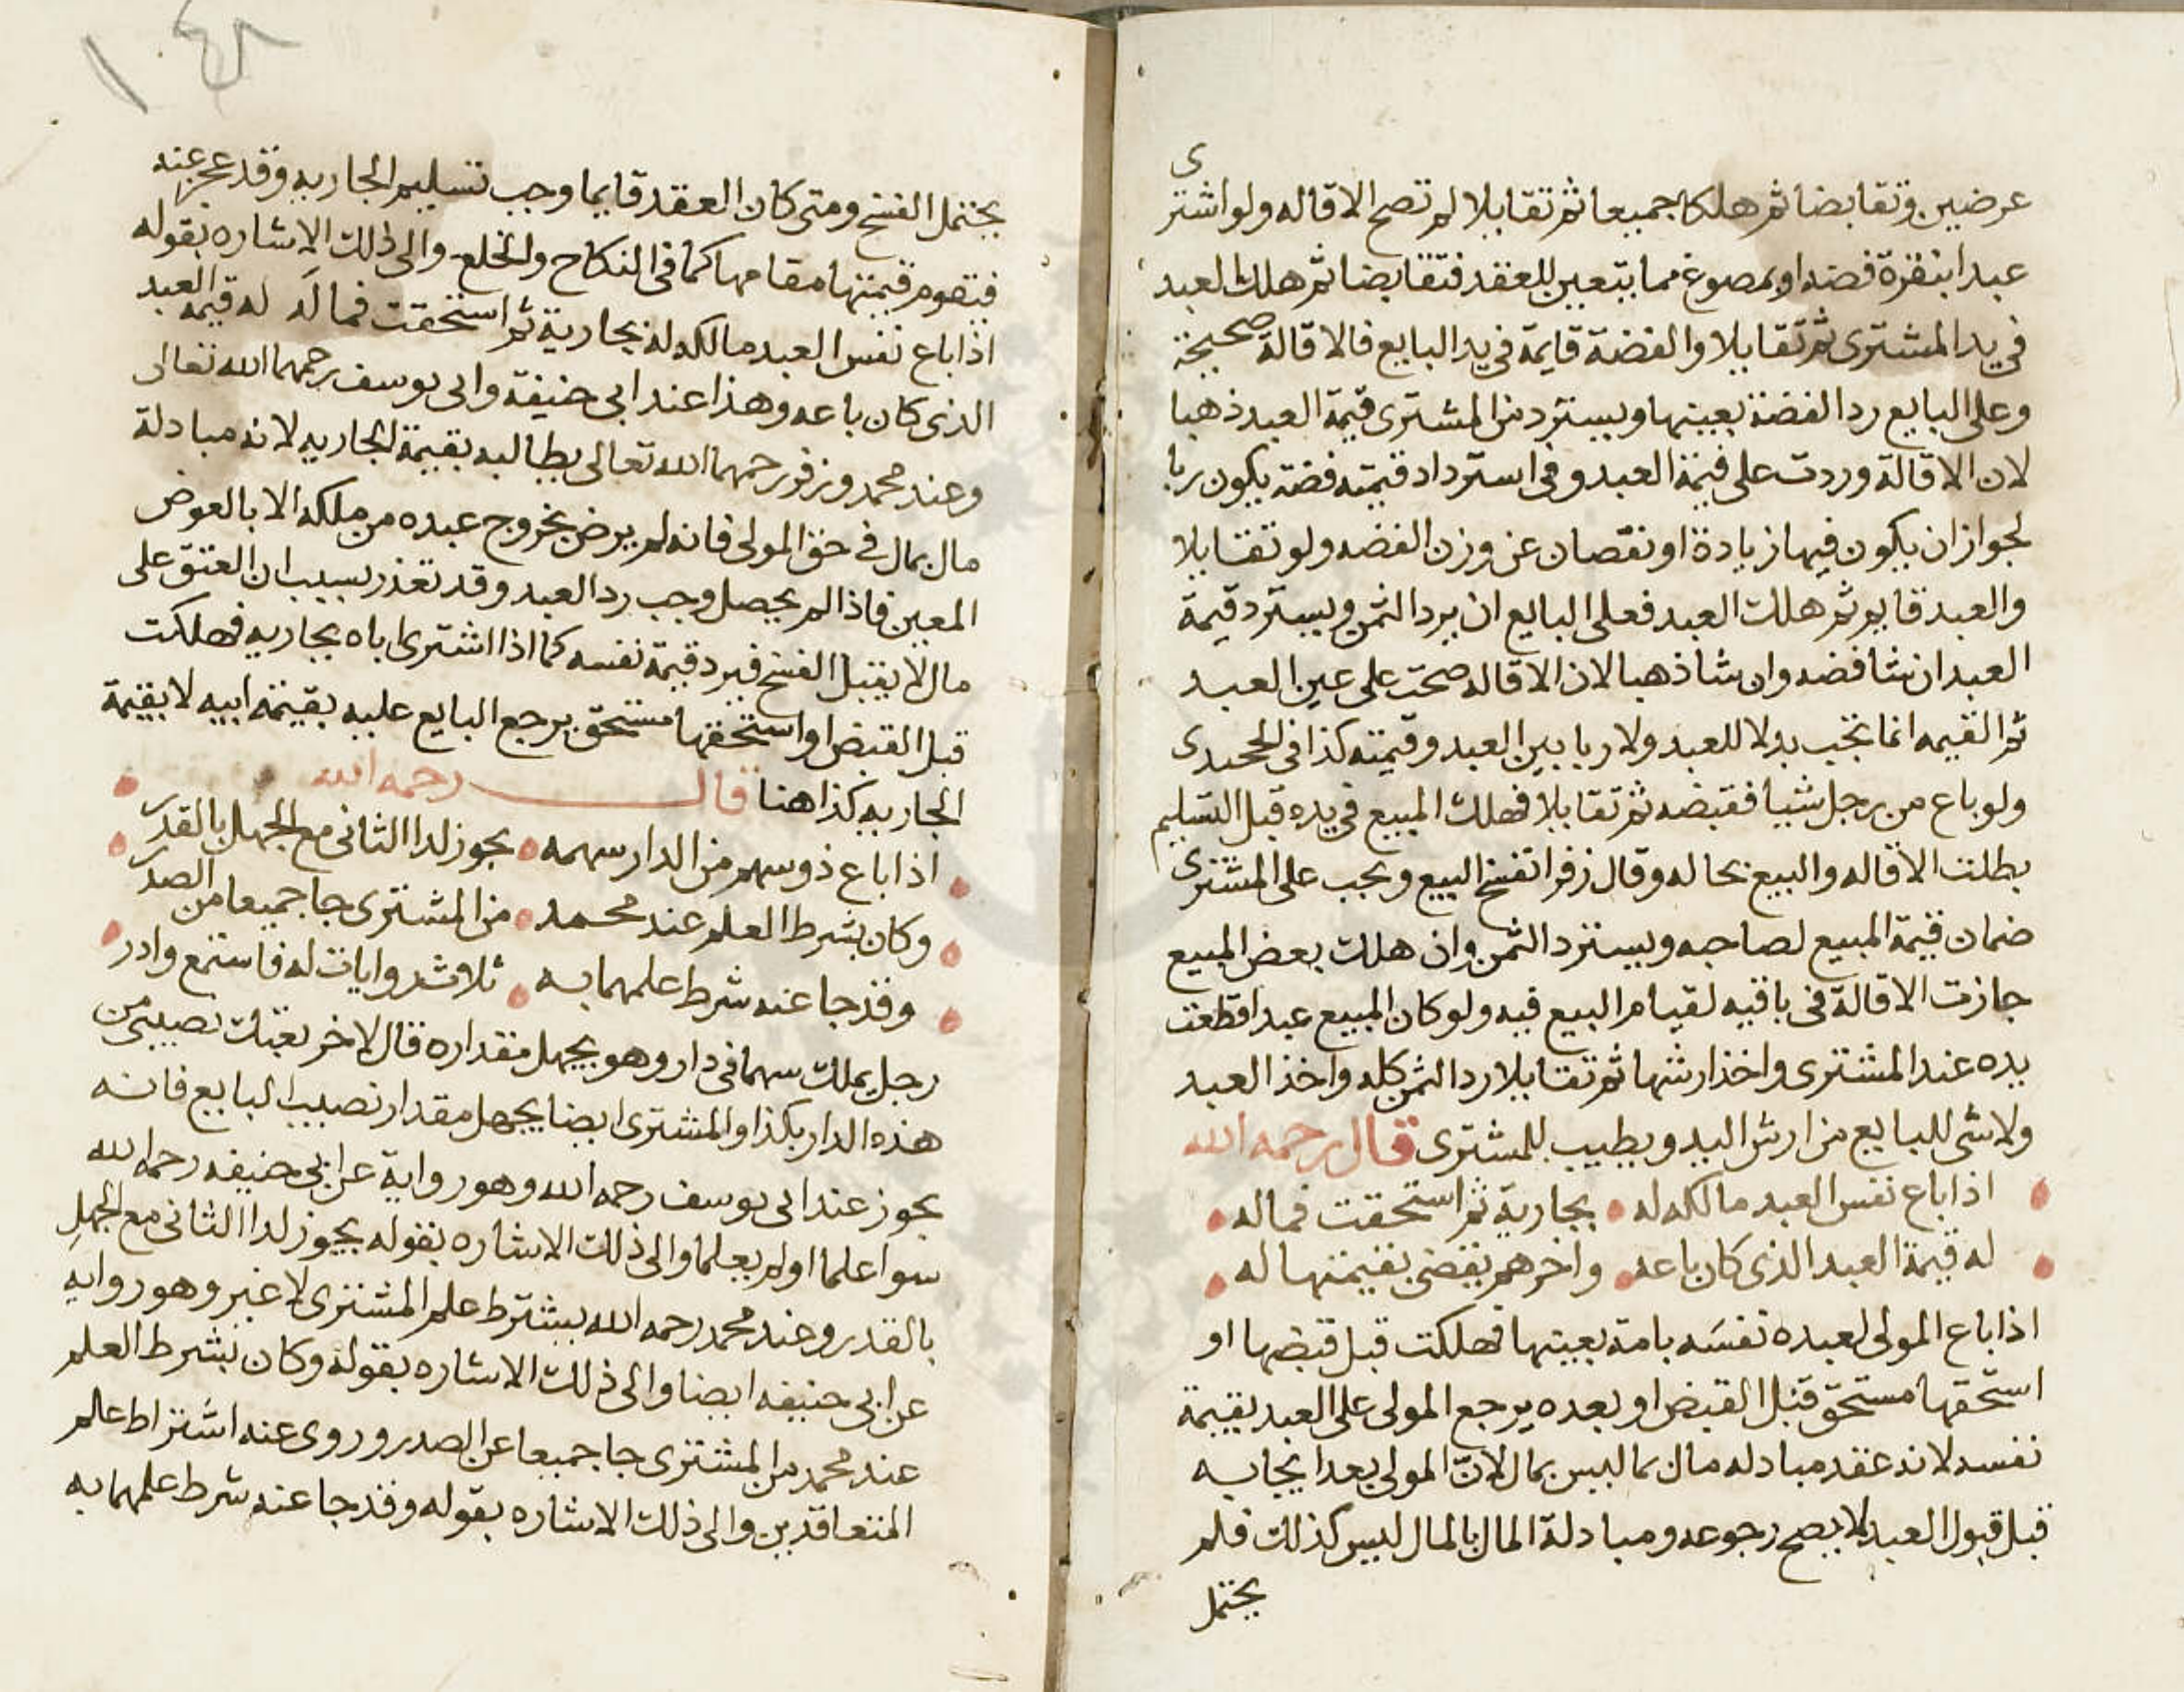 عرضين وتقابضا ثم هلكا جميعا ثم تقايلا لم تصح الاقاله ولو اشترى
عبدا بنقرة فضه او بمصوغ مما يتعين للعقد فتقابضا ثم هلك العبد
في يد المشترى ثم تقايلا والفضة قايمة في يد البايع فالاقالة صحيحة
وعلى البايع رد الفضة بعينها ويسترد من المشترى قيمة العبد ذهبا
لان الاقالة وردت على قيمة العبد وفي استرداد قيمته فضة يكون ربا
لجواز ان يكون فيها زيادة او نقصان عن وزن الفضه ولو تقايلا
والعبد قايم ثم هلك العبد فعلى البايع ان يرد الثمن ويسترد قيمة
العبد ان شا فضه وان شا ذهبا لان الاقاله صحت على عين العبد
ثم القيمه انما تجب بدلا للعبد ولا ربا بين العبد وقيمته كذا في
ولو باع من رجل شيا فقبضه ثم تقايلا فهلك المبيع في يده قبل التسليم
بطلت الاقاله والبيع بحاله وقال زفر انفسخ البيع ويجب على المشترى
ضمان قيمة المبيع لصاحبه ويسترد الثمن وان هلك بعض المبيع
جازت الاقالة في باقيه لقيام البيع فيه ولو كان المبيع عبدا فقطعت
يده عند المشترى واخذ ارشها ثم تقايلا رد الثمن كله واخذ العبد
ولا شى للبايع من ارش اليد ويطيب للمشترى قال رحمه الله
اذا باع نفس العبد مالكه له بجارية ثم استحقت فماله
له قيمة العبد الذى كان باعه واخرهم يقضى بقيمتها له
اذا باع المولى لعبده نفسه بامة بعينها فهلكت قبل قبضها او
استحقها مستحق قبل القبض او بعده يرجع المولى على العبد بقيمة
نفسه لانه عقد مبادله مال بما ليس بمال لان المولى بعد ايجابه
قبل قبول العبد لا يصح رجوعه ومبادلة المال بالمال ليس كذلك فلم
يحتمل
١٤٨
يحتمل الفسخ ومتى كان العقد قايما وجب تسليم الجاريه وقد عجز عنه
فيقوم قيمتها مقامها كما في النكاح والخلع والى ذلك الاشاره بقوله
اذا باع نفس العبد مالكه له بجارية ثم استحقت فما له له قيمة العبد
الذى كان باعه وهذا عند ابى حنيفة وابى يوسف رحمهما الله تعالى
وعند محمد وزفر رحمهما الله تعالى يطالبه بقيمة الجاريه لانه مبادلة
مال بمال في حق المولى فانه لم يرض بخروج عبده من ملكه الا بالعوض
المعين فاذا لم يحصل وجب رد العبد وقد تعذر بسبب ان العتق على
مال لا يقبل الفسخ فيرد قيمة نفسه كما اذا اشترى اباه بجاريه فهلكت
قبل القبض او استحقها مستحق يرجع البايع عليه بقيمة ابيه لا بقيمة
الجاريه كذا هنا قال رحمه الله
اذا باع ذو سهم من الدار سهمه يجوز لدا الثانى مع الجهل بالقدر
وكان بشرط العلم عند محمد من المشترى جا جميعا من الصدر
وقد جا عنه شرط علمهما به ثلاث روايات له فاستمع وادر
رجل يملك سهما في دار وهو يجهل مقداره قال لاخر بعتك نصيبى من
هذه الدار بكذا والمشترى ايضا يجهل مقدار نصيب البايع فانه
يجوز عند ابى يوسف رحمه الله وهو رواية عن ابى حنيفه رحمه الله
سوا علما او لم يعلما والى ذلك الاشاره بقوله يجوز لدا الثانى مع الجهل
بالقدر وعند محمد رحمه الله يشترط علم المشترى لا غير وهو روايه
عن ابى حنيفه ايضا والى ذلك الاشاره بقوله وكان بشرط العلم
عند محمد من المشترى جا جميعا عن الصدر وروى عنه اشتراط علم
المتعاقدين والى ذلك الاشاره بقوله وقد جا عنه شرط علمهما به